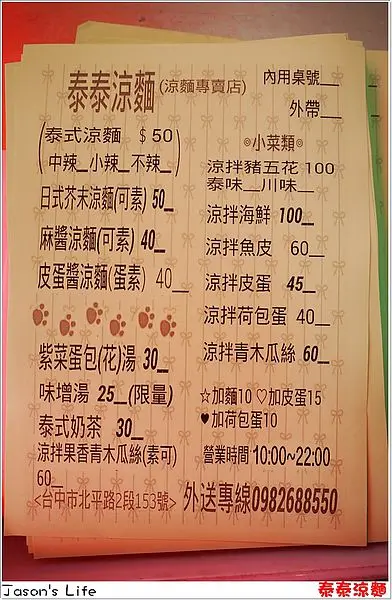 泰泰涼麵(涼麵專賣店)
內用桌號__
外帶__
(泰式涼麵 $50
中辣__小辣__不辣__)
日式芥末涼麵(可素) 50__
麻醬涼麵(可素) 40__
皮蛋醬涼麵(蛋素) 40__
紫菜蛋包(花)湯 30__
味增湯 25__(限量)
泰式奶茶 30__
涼拌果香青木瓜絲(素可)
60__
<台中市北平路2段153號>
◎小菜類◎
涼拌豬五花 100
泰味__川味__
涼拌海鮮 100__
涼拌魚皮 60__
涼拌皮蛋 45__
涼拌荷包蛋 40__
涼拌青木瓜絲 60__
☆加麵10 ♡加皮蛋15
♥加荷包蛋10
營業時間 10:00~22:00
外送專線0982688550
Jason's Life
泰泰涼麵